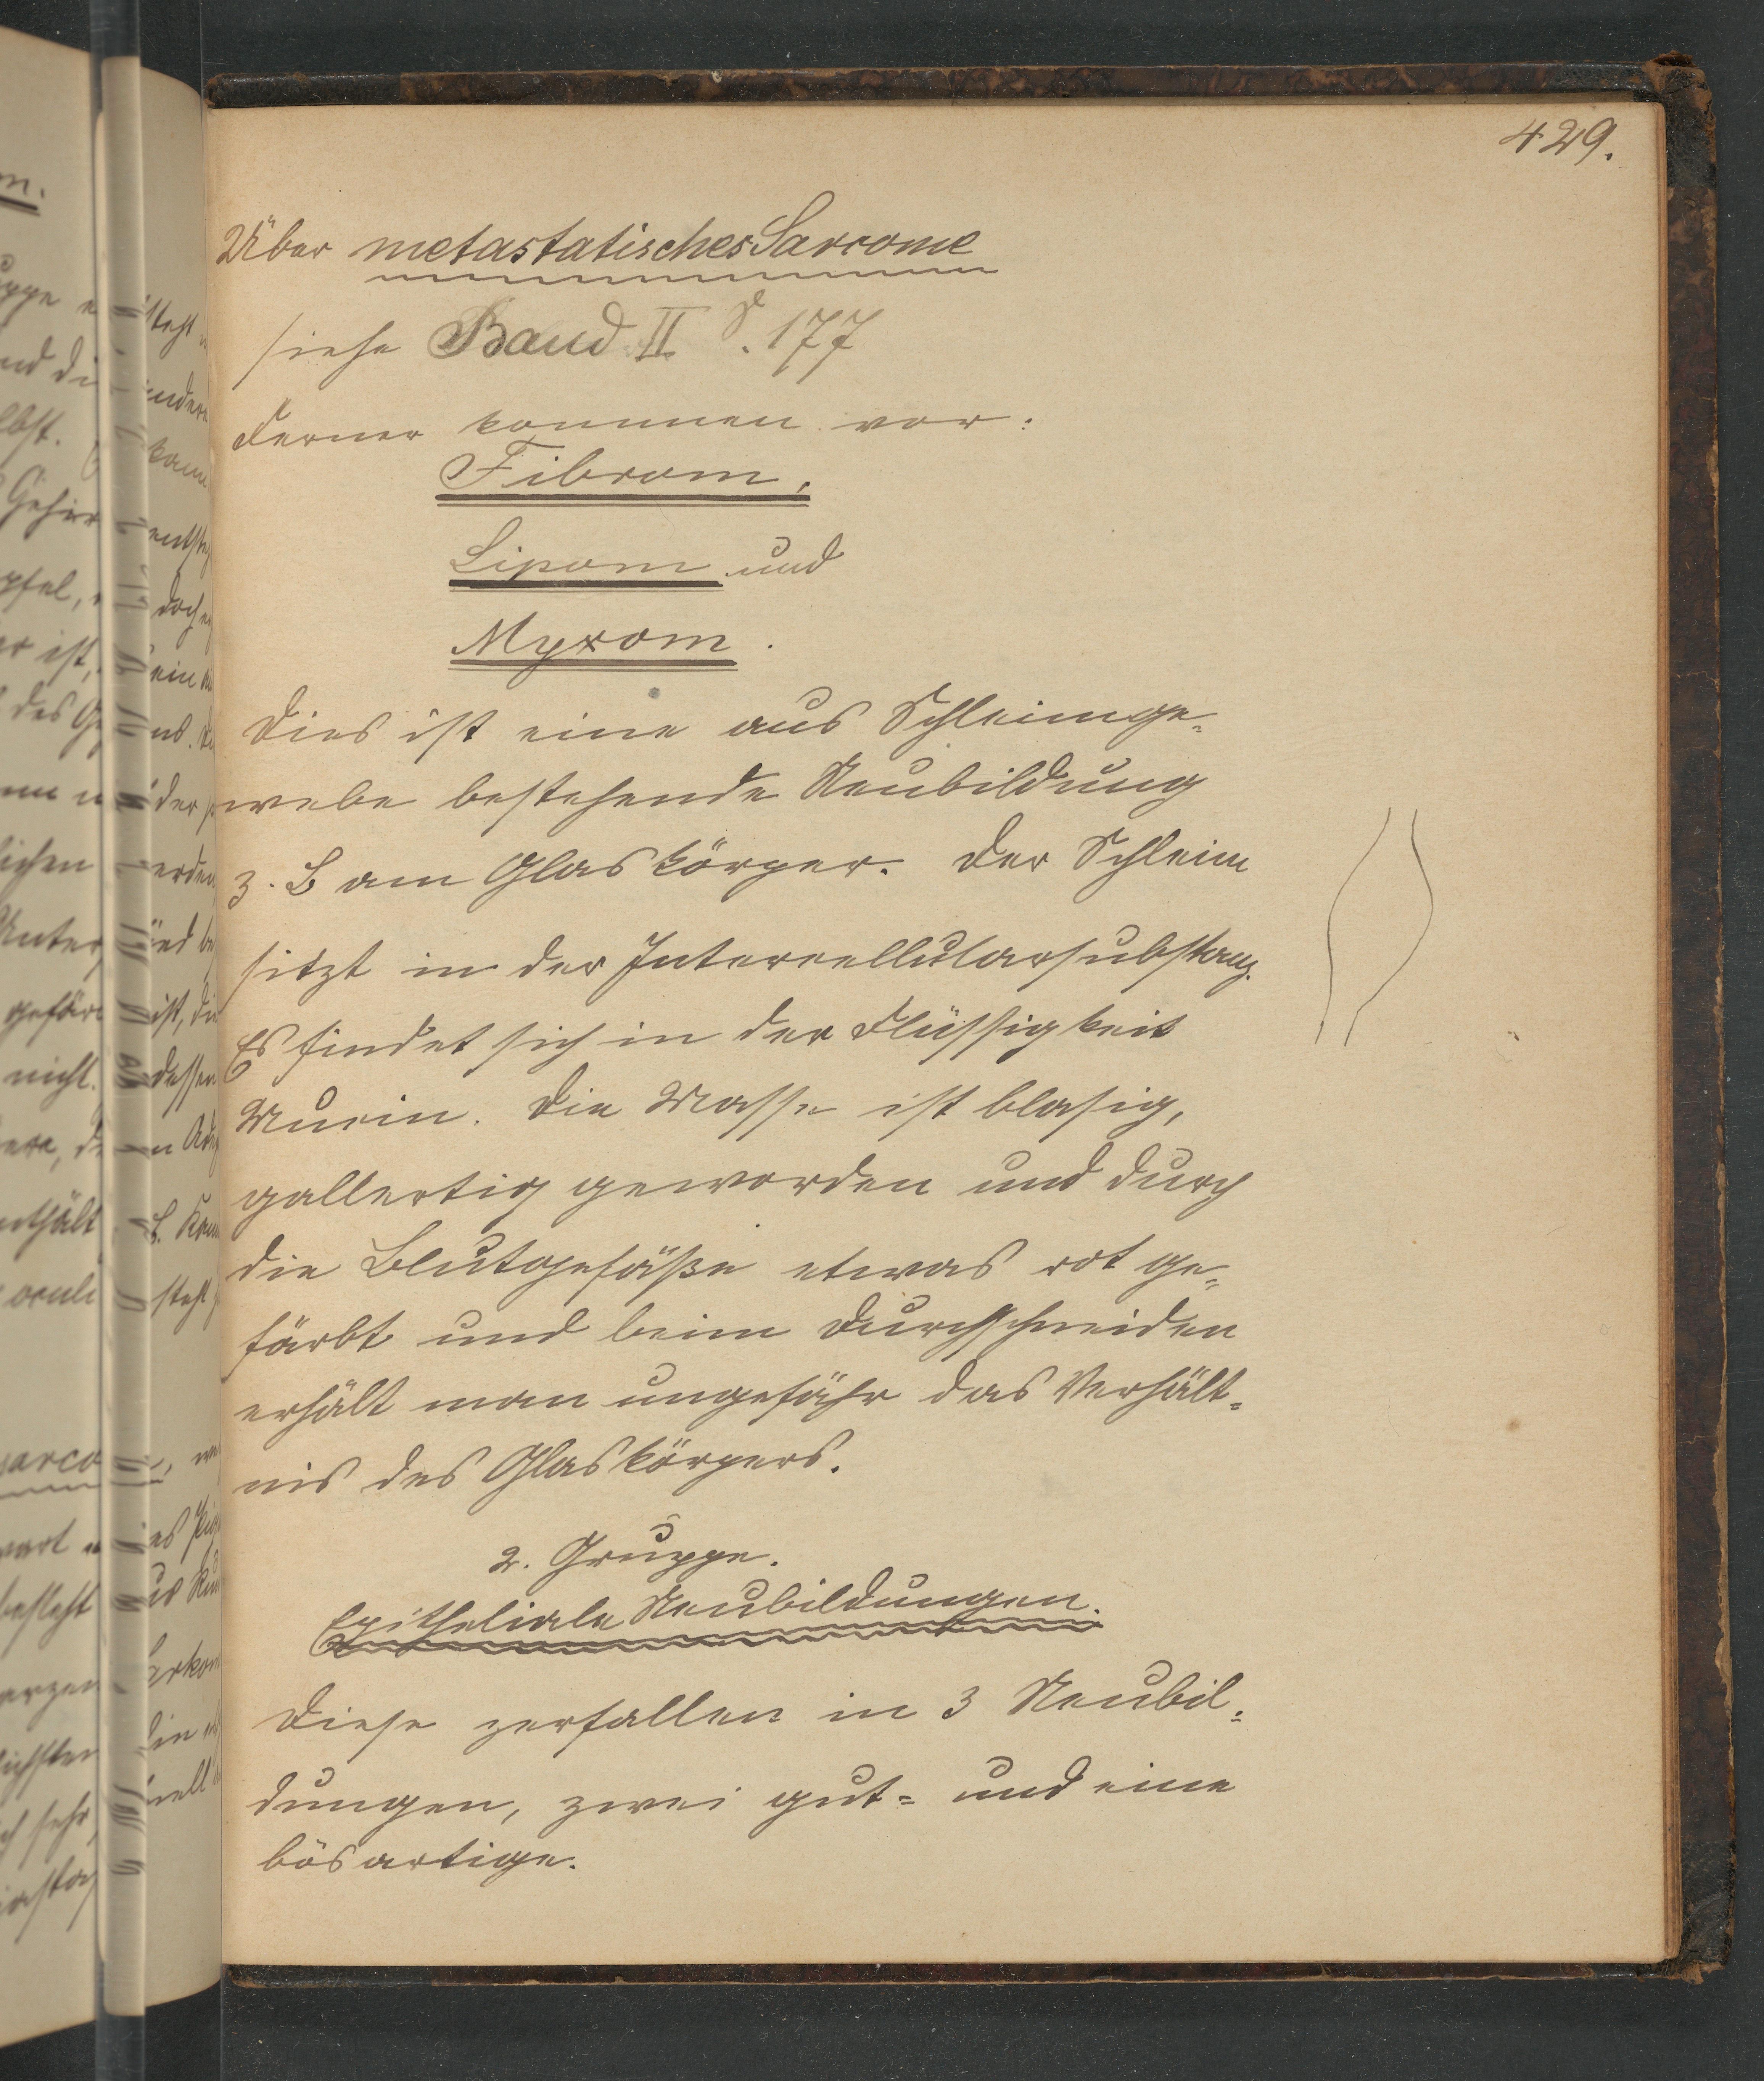 429.
Über metastatisches Sarcome
siehe Band II S. 177
Ferner kommen vor:
Fibrom,
Lipom und
Myxom.
Dies ist eine aus Schleimge-
webe bestehende Neubildung
z. B am Glaskörper. Der Schleim
sitzt in der Intercellularsubstanz.
Es findet sich in der Flüssigkeit
Mucin. Die Masse ist blasig,
gallertig geworden und durch
die Blutgefäße etwas rot ge-
färbt und beim Durchschneiden
erhält man ungefähr das Verhält-
nis des Glaskörpers.
2. Gruppe.
Epitheliale Neubildungen.
Diese zerfallen in 3 Neubil-
dungen, zwei gut- und eine
bösartige.